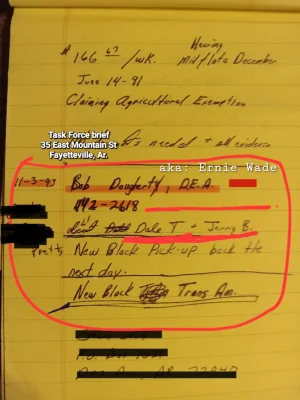 # 166 67 /wk. Hearing
Mid/late December
June 14-91
Claiming Agricultural Exemption
Task Force brief
35 East Mountain St
Fayetteville, Ar.
needed + all evidence
aka: Ernie Wade
11-3-93 Bob Dougherty, D.E.A.
442-2618
Dale T + Jerry B.
New Black Pick-up back the
next day.
New Black Trans Am.